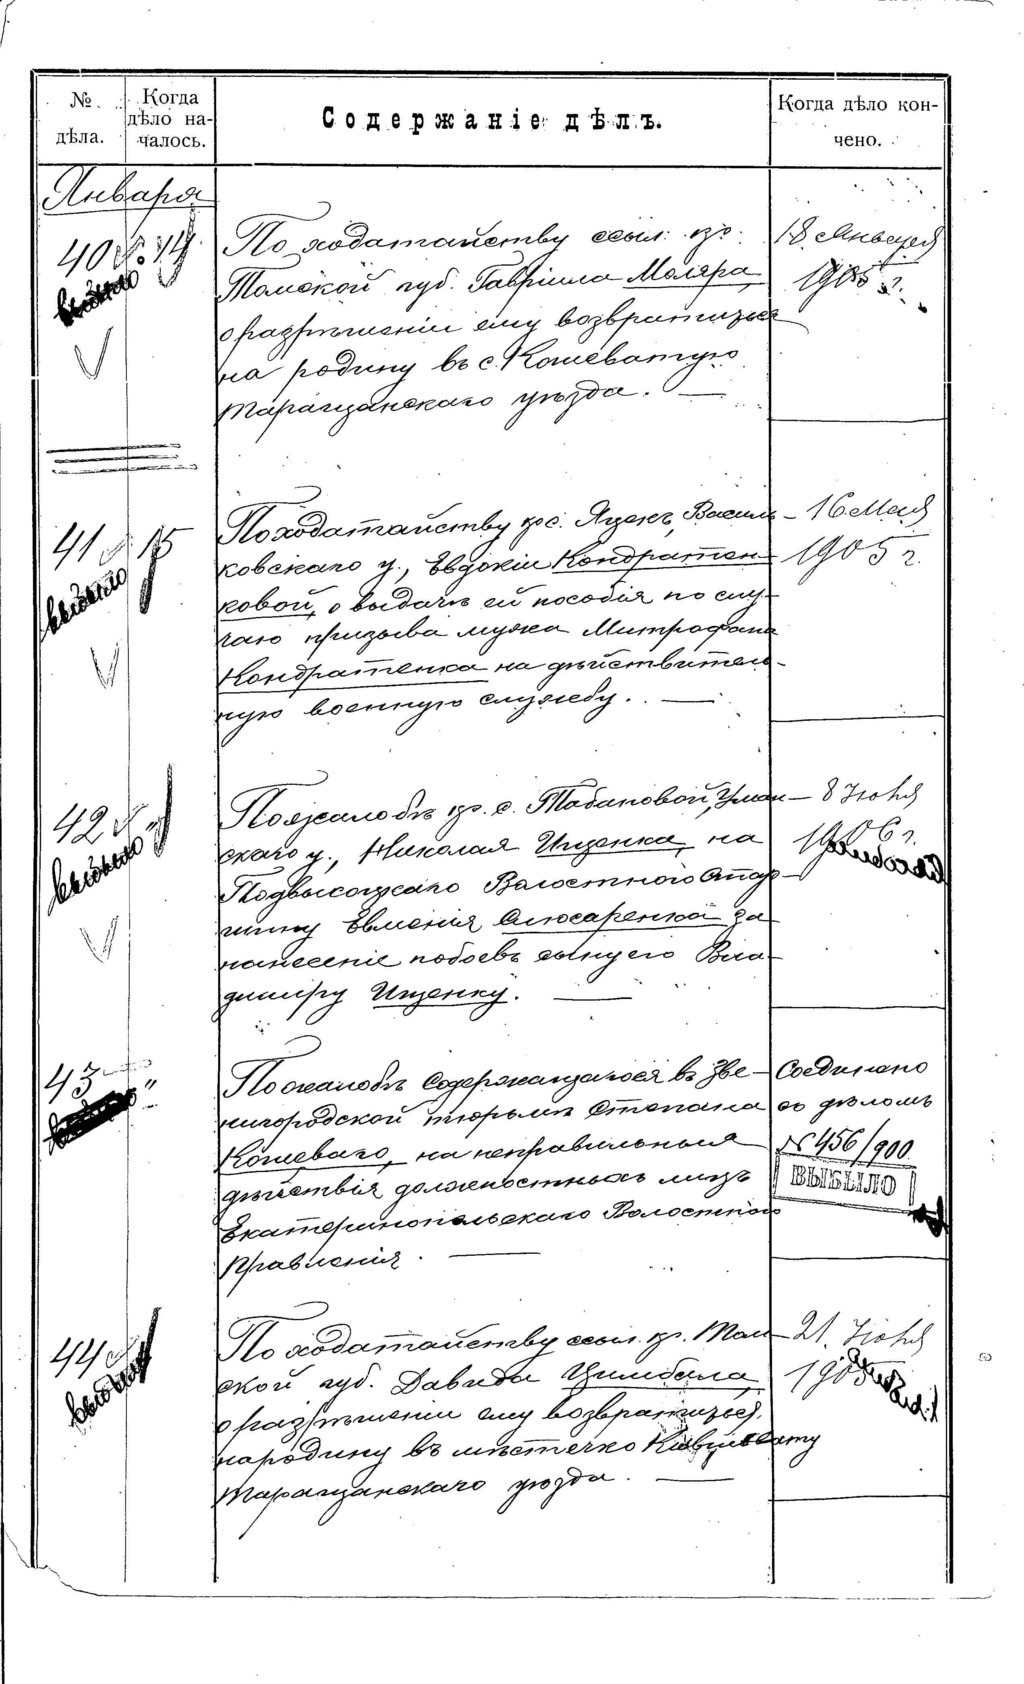 № дѣла. Когда дѣло началось. Содержаніе дѣлъ. Когда дѣло кончено.
Января
40 14
выбыло
По ходатайству ссыл. кр.
Томской губ. Гавріила Моляра,
о разрѣшеніи ему возвратиться
на родину въ с. Кошеватую
Таращанскаго уѣзда.
18 Января
1905 г.
41 15
выбыло
По ходатайству кр. с. Яцекъ, Василь-
ковскаго у., Евдокіи Кондратен-
ковой, о выдачѣ ей пособія по слу-
чаю призыва мужа Митрофана
Кондратенка на дѣйствитель-
ную военную службу.
16 Мая
1905 г.
42 "
выбыло
По жалобѣ кр. с. Табановой, Уман-
скаго у., Николая Ищенка, на
Подвысоцкаго Волостного Стар-
шину Евменія Слюсаренка за
нанесеніе побоевъ сыну его Вла-
диміру Ищенку.
8 Іюня
1906 г.
43 "
По жалобѣ содержащагося въ Зве-
нигородской тюрьмѣ Степана
Кошеваго, на неправильныя
дѣйствія должностныхъ лицъ
Екатеринопольскаго Волостного
Правленія.
Соединено
съ дѣломъ
№ 456/900
ВЫБЫЛО
44
выбыло
По ходатайству ссыл. кр. Том-
ской губ. Давида Цимбала,
о разрѣшеніи ему возвратиться
на родину въ мѣстечко
Таращанскаго уѣзда.
21 Іюня